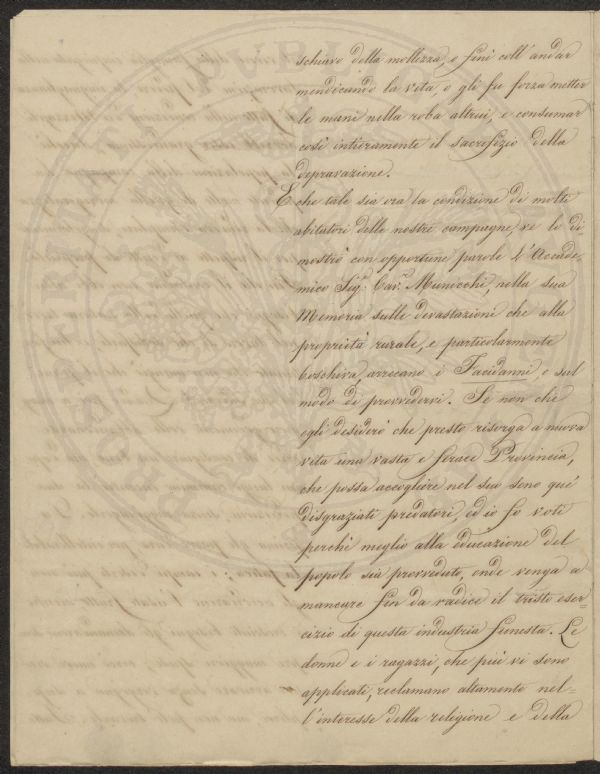 schiavo della mollezza, e finì coll'andar
mendicando la vita, o gli fu forza metter
le mani nella roba altrui, e consumar
così intieramente il sacrifizio della
depravazione.
E che tale sia ora la condizione di molti
abitatori delle nostre campagne, ve lo di
mostrò con opportune parole l'Accade,
mico Sig.r Cav.r Municchi, nella sua
Memoria sulle devastazioni che alla
proprietà rurale, e particolarmente
boschiva, arrecano i Facidanni, e sul
modo di provvedervi. Se non che
egli desiderò che presto risorga a nuova
vita una vasta e ferace Provincia,
che possa accogliere nel suo seno que'
disgraziati predatori, ed io fo voti
perchè meglio alla educazione del
popolo sia provveduto, onde venga a
mancare fin da radice il tristo eser=
cizio di questa industria funesta. Le
donne e i ragazzi, che più vi sono
applicati, reclamano altamente nel=
l'interesse della religione e della